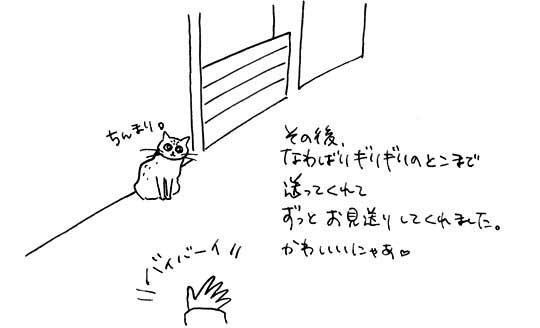 ちんまり。
その後、
なわばりぎりぎりのとこまで
送ってくれて
ずっとお見送りしてくれました。
かわいいにゃあ♡
バイバーイ!!